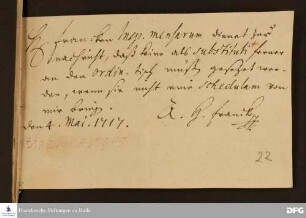 H. Francken Insp. mensarum dienet zur
nachricht, daß keine als substituti ferner
an den ordin. tisch müssen gesetzet wer-
den, wenn sie nicht eine schedulam von
mir bringen.
den 4. Mai. 1717.
A. H. Francke
22
Franckesche Stiftungen zu Halle
DFG